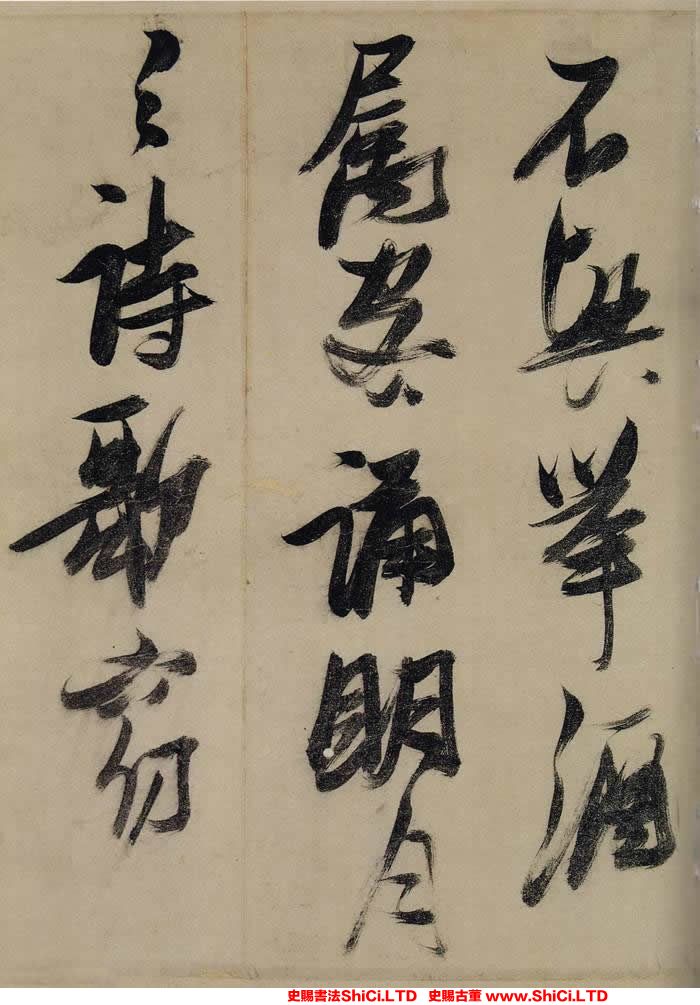 不興舉酒
屬客誦明月
之詩歌窈
史賜書法ShiCi.LTD 史賜古董 www.ShiCi.LTD